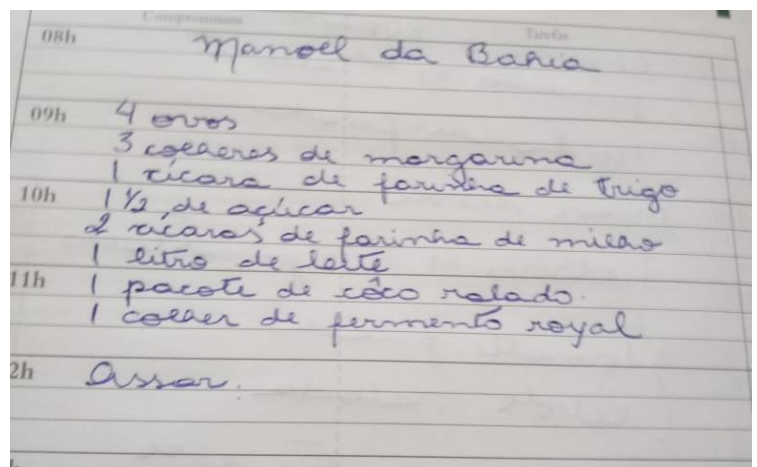 Compromissos Tarefas
08h Manoel da Bahia
09h 4 ovos
3 colheres de margarina
1 xícara de farinha de trigo
10h 1 1/2 de açúcar
2 xícaras de farinha de milho
1 litro de leite
11h 1 pacote de côco ralado.
1 colher de fermento royal
2h Assar.